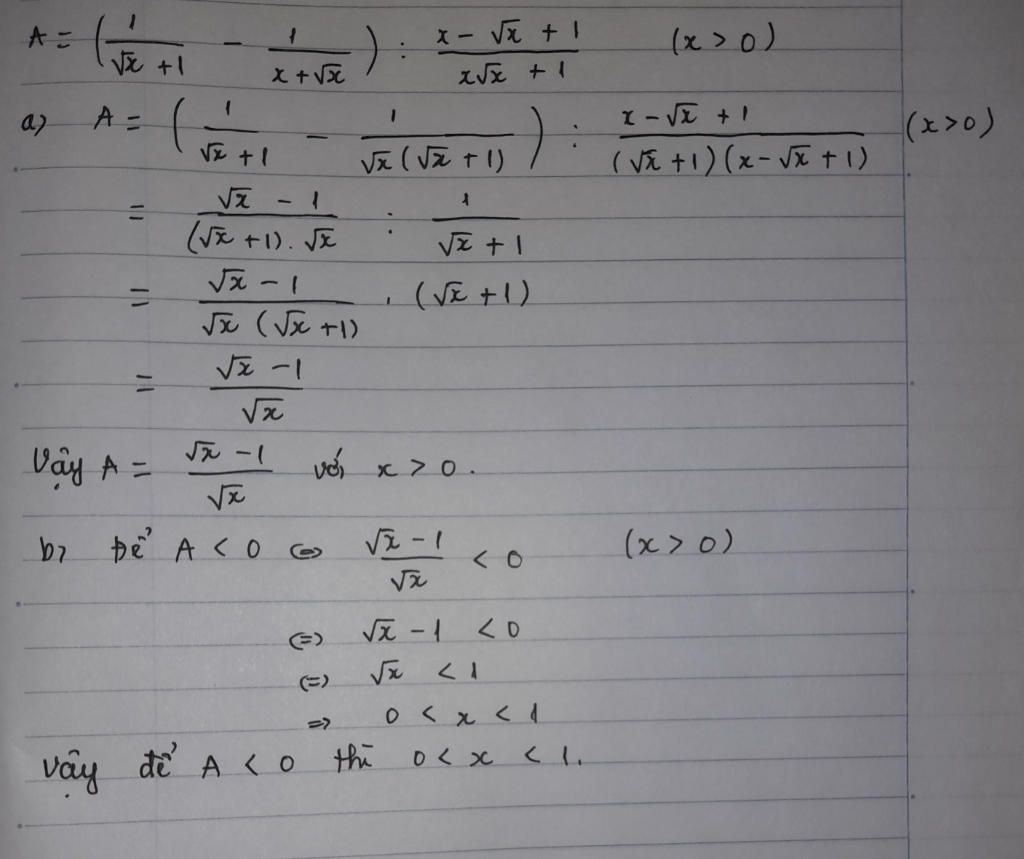 A = (1/(√x + 1) − 1/(x + √x)) : (x − √x + 1)/(x√x + 1) (x > 0)
a) A = (1/(√x + 1) − 1/(√x (√x + 1))) : (x − √x + 1)/((√x + 1)(x − √x + 1)) (x > 0)
= (√x − 1)/((√x + 1). √x) : 1/(√x + 1)
= (√x − 1)/(√x (√x + 1)) . (√x + 1)
= (√x − 1)/√x
Vậy A = (√x − 1)/√x với x > 0.
b) Để A < 0 <=> (√x − 1)/√x < 0 (x > 0)
<=> √x − 1 < 0
<=> √x < 1
=> 0 < x < 1
Vậy để A < 0 thì 0 < x < 1.